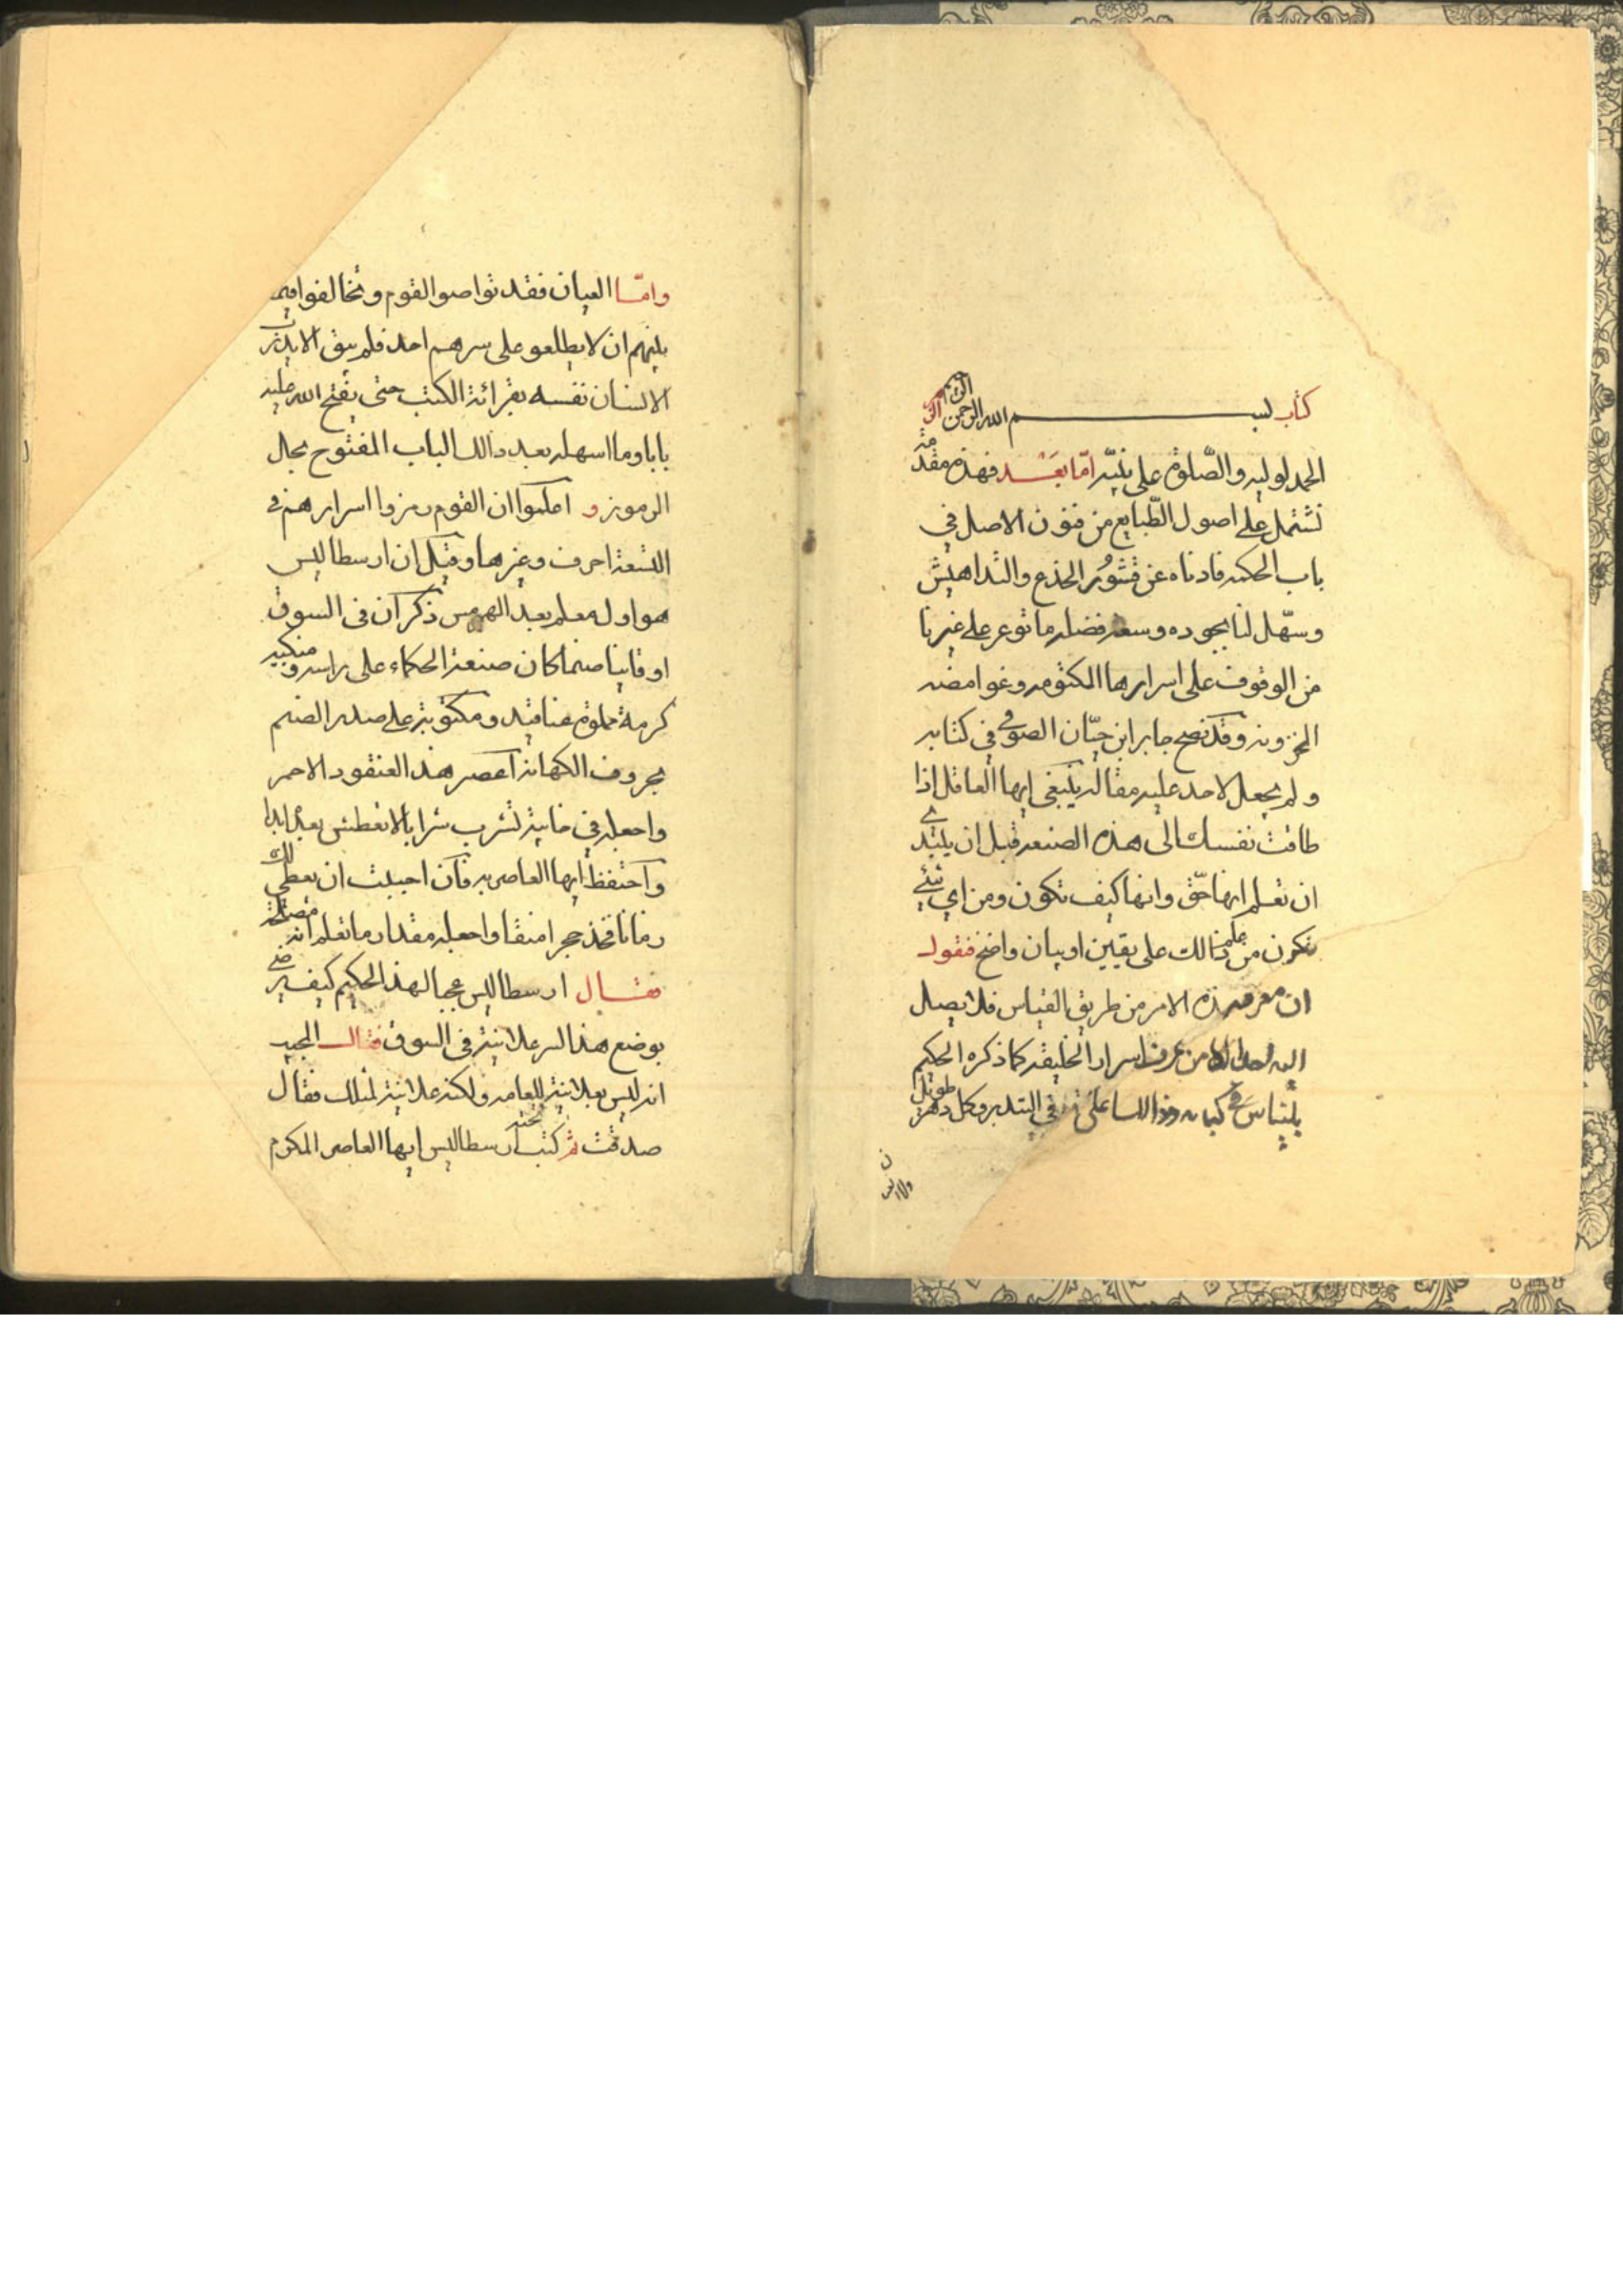 كتاب بسم الله الرحمن الرحيم
الحمد لوليه والصّلوة على نبيّه امّا بعد فهذه مقدمة
تشتمل على اصول الطّبايع من فنون الاصل في
باب الحكمه فادناه عن قشور الجذع والتداهيش
وسهّل لنا بجوده وسعة فضله ما توعر على غيرنا
من الوقوف على اسرارها المكتومه وغوامضه
المخزونه وقد نصح جابر ابن حيّان الصوفي في كتابه
ولم يجعل لاحد عليه مقاله ينبغي ايها العاقل اذا
طاقت نفسك الى هذه الصنعه قبل ان يبتدي
ان تعلم انها حّق وانها كيف تكون ومن اي شيء
تكون من علمنا ذالك على يقين او بيان واضح فنقول
ان معرفه هذه الامر من طريق القياس فلا يصل
اليه احد الا من عرف اسرار الخليقه كما ذكره الحكيم
بليناس في كيانه في التدبير وكل دهر طويل
وامّا العيان فقد تواصوا القوم وتحالفوا فيما
بينهم ان لا يطلعو على سرهم احد فلم يبق الا يدرّب
الانسان نفسه بقرائة الكتب حتى يفتح الله عليه
بابا وما اسهله بعد ذالك الباب المفتوح بحال
الرموز و امكنوا ان القوم رمزوا اسرارهم في
التسعة احرف وغيرها وقيل ان ارسطاليس
هو اول معلم بعد الهرمس ذكر ان في السوق
اوقاينا صنما كان صنعة الحكماء على راسه ومنكبيه
كرمة مملوة عناقيد ومكتوبة على صدر الصنم
بحروف الكهانة اعصر هذ العنقود الاحمر
واجعله في خابية لتشرب شرابا لا تعطش بعدة ابدا
واحتفظ ايها العاصر به فان احببت ان نعطي لك
رمانا فخذ حجرا منقا واجعله مقدار ما تعلم انه
فقال ارسطاليس عجبا لهذ الحكيم كيف رضي
بوضع هذا السر علانية في السوق فقال المجيب
انه ليس بعلانية للعامه ولكنه علانية لمثلك فقال
صدقت ثم كتب تحته ارسطاليس ايها العاصر المكرم